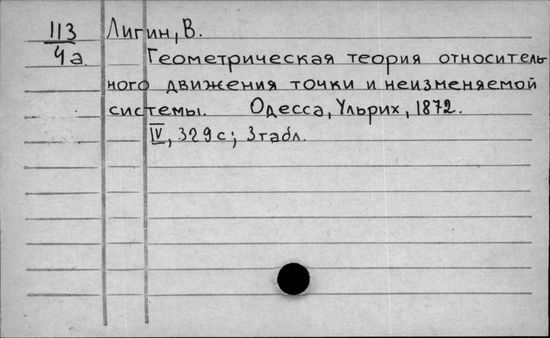 113 Лигин, В.
4а Геометрическая теория относитель
ного движения точки и неизменяемой
системы. Одесса, Ульрих, 1872.
IV, 329 с; 3 табл.